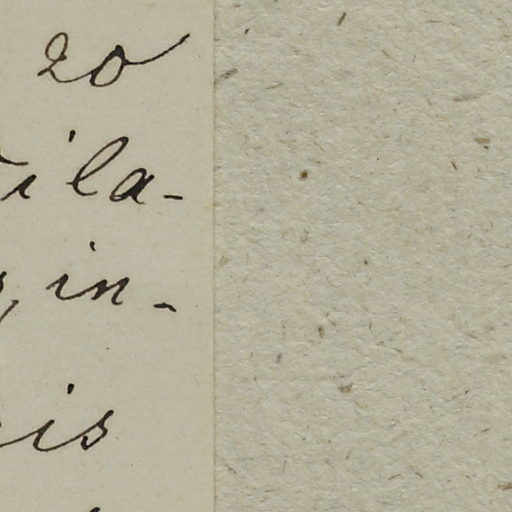 20
ila-
, in-
is